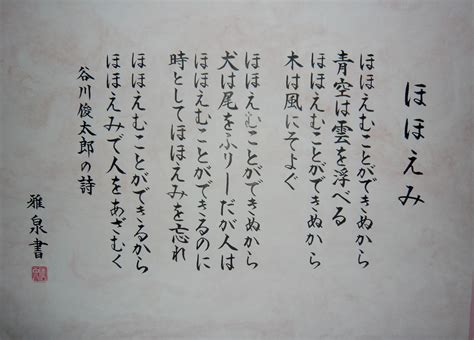 ほほえみ
ほほえむことができぬから
青空は雲を浮べる
ほほえむことができぬから
木は風にそよぐ
ほほえむことができぬから
犬は尾をふりーだが人は
ほほえむことができるのに
時としてほほえみを忘れ
ほほえむことができるから
ほほえみで人をあざむく
谷川俊太郎の詩
雅泉書